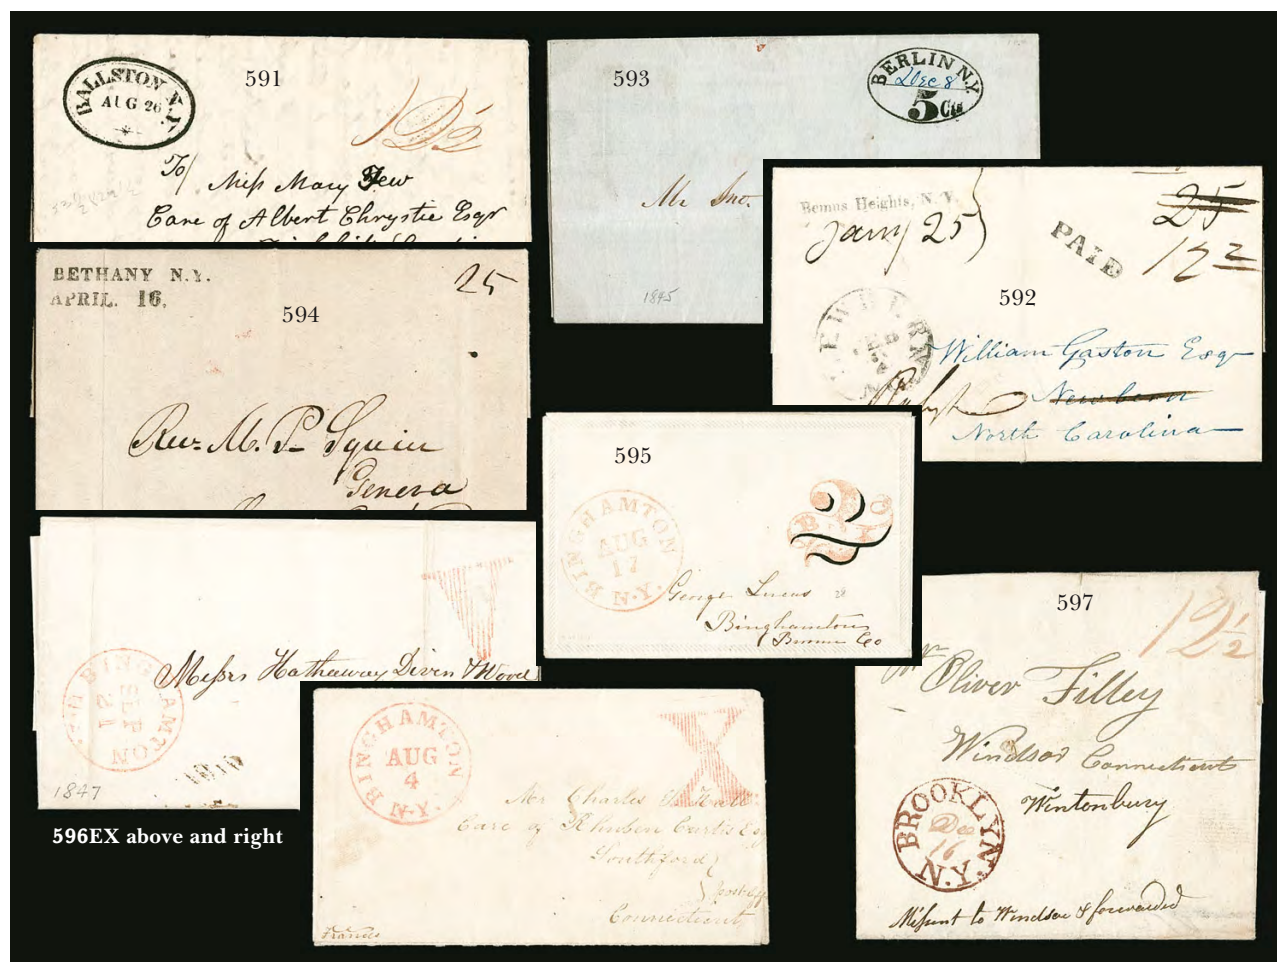 591
BALLSTON N.Y.
AUG 26
12½
To/
Miss Mary Few
Care of Albert Chrystie Esqr
593
BERLIN N.Y.
Dec 8
5 Cts
Mr Jno.
1845
Bemus Heights, N.Y.
Jany 25
PAID
25
12½
592
William Gaston Esqr
Newbern
North Carolina
BETHANY N.Y.
APRIL. 16,
594
25
Rev. M. P. Squier
Geneva
595
BINGHAMTON N.Y.
AUG
17
2
George Lucas
Binghamton
Broome Co
V
BINGHAMTON
SEP
21
Messrs Hathaway Diven & Wood
PAID
1847
596EX above and right
BINGHAMTON N.Y.
AUG
4
X
Mr Charles
Care of Rhuben Curtis Esq
Southford
Connecticut
597
12½
Oliver Filley
Windsor Connecticut
Wintonbury
BROOKLYN N.Y.
Dec
16
Missent to Windsor & forwarded